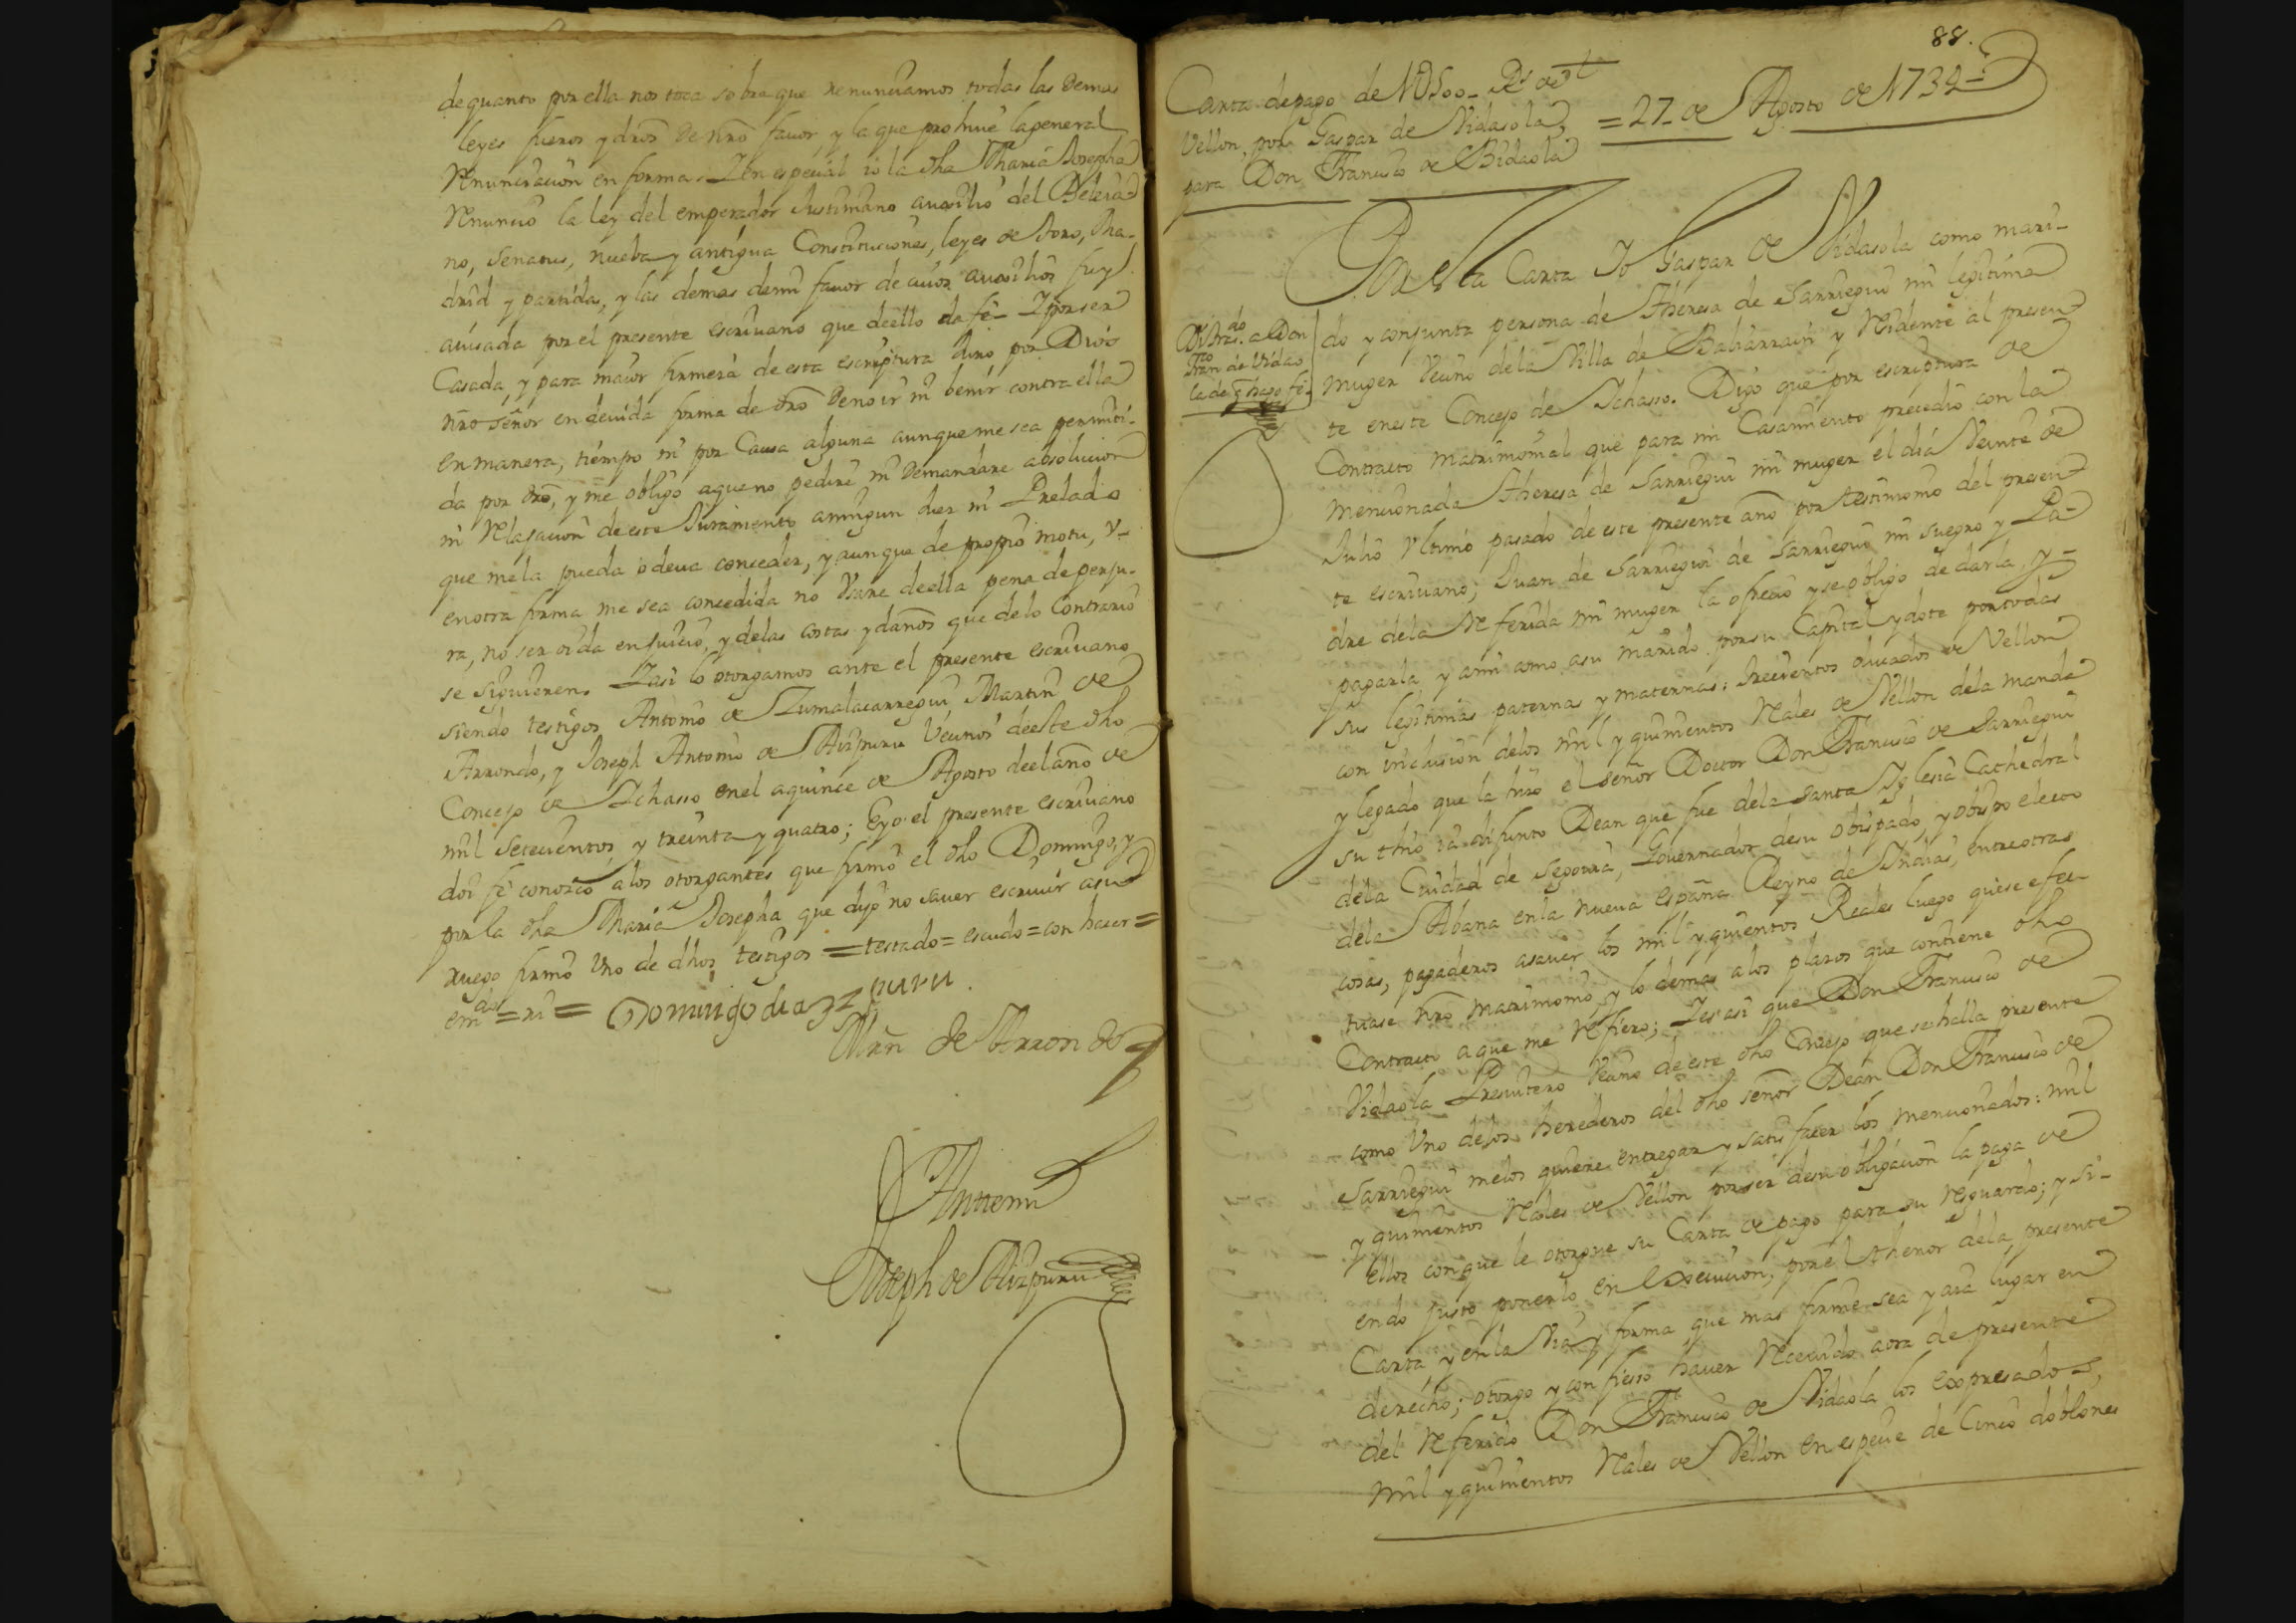 de quanto por ella nos toca sobre que renunciamos todas las demas
leyes fueros y dros de nro favor, y la que prohive la general
renunciacion en forma. I en especial io la dha Maria Josepha
renuncio la ley del emperador Justiniano auxilio del Beleia-
no, Senatus, nueba y antigua Constituciones, leyes de Toro, Ma-
drid y partida, y las demas de mi favor de cuios auxilios fuy
auisada por el presente escriuano que de ello da fe- I por ser
Casada, y para maior firmeza de esta escriptura Juro por Dios
nro señor en deuida forma de dro de no ir ni benir contra ella
en manera, tiempo ni por Causa alguna aunque me sea permiti-
da por dro, y me obligo a que no pedire ni demandare absolucion
ni relaxacion de este Juramento a ningun Juez ni Prelado
que me la pueda o deua conceder, y aunque de propio motu, v-
en otra forma me sea concedida no Usare de ella pena de perju-
ra, no ser oida en juicio, y de las costas y daños que de lo Contrario
se siguieren. I asi lo otorgamos ante el presente escriuano
siendo testigos Antonio de Zumalacarregui, Martin de
Arrondo, y Joseph Antonio de Aizpuru Vecinos de este dho
Concejo de Ichasso en el a quince de Agosto de el año de
mil Setecientos y treinta y quatro; E yo el presente escriuano
doi fe conozco a los otorgantes que firmo el dho Domingo, y
por la dha Maria Josepha que dijo no sauer escriuir a su
ruego firmo Uno de dhos testigos = testado = escudo = con hacer =
em.do = ri = Domingo di aizpuru.
Mrn de Arrondo
Ante mi
Joseph de Aizpuru
88.
Carta de pago de 1U500- Rs de
Vellon, por Gaspar de Vidaola,
para Don Francisco de Bidaola
= 27- de Agosto de 1734 =
Por esta Carta Io Gaspar de Vidaola como mari-
do y conjunta persona de Theresa de Sarriegui mi legitima
muger Vecino de la Villa de Baliarrain y Residente al presen-
te en este Concejo de Ichasso. Digo que por escriptura de
Contracto matrimonial que para mi Casamiento precedio con la
mencionada Theresa de Sarriegui mi muger el dia Veinte de
Julio Ultimo pasado de este presente año por testimonio del presen-
te escriuano; Juan de Sarriegui de Sarriegui mi suegro y Pa-
dre de la Referida mi muger la ofrecio y se obligo de darla, y-
pagarla y a mi como a su marido por su Capital y dote por todas
sus legitimas paternas y maternas: trecientos ducados de Vellon
con inclusion de los mil y quinientos Reales de Vellon de la manda
y legado que la hizo el señor Doctor Don Francisco de Sarriegui
su thio ia difunto Dean que fue de la Santa Iglesia Cathedral
de la Ciudad de Segouia, Gouernador de su obispado, y obispo electo
de la Abana en la nueua españa Reyno de Indias, entre otras
cosas, pagaderos a sauer los mil y quinientos Reales luego que se efec-
tuase nro matrimonio, y lo demas a los plazos que contiene dho
Contracto a que me refiero; I es asi que Don Francisco de
Vidaola Presuitero Vecino de este dho Concejo que se halla presente
como Uno de los herederos del dho señor Dean Don Francisco de
Sarriegui me los quiere entregar y satisfacer los mencionados: mil
y quinientos Reales de Vellon por ser de su obligacion la paga de
ellos con que le otorgue su Carta de pago para su resguardo; y si-
endo justo ponerlo en Execucion, por el thenor de la presente
Carta, y en la Via y forma que mas firme sea y aia lugar en
derecho; otorgo y confieso hauer Receuido aora de presente
del Referido Don Francisco de Vidaola los expresados,
mil y quinientos Reales de Vellon en especie de Cinco doblones
Di tras.do a Don
Fran.co de Vidao-
la de q hago fe.